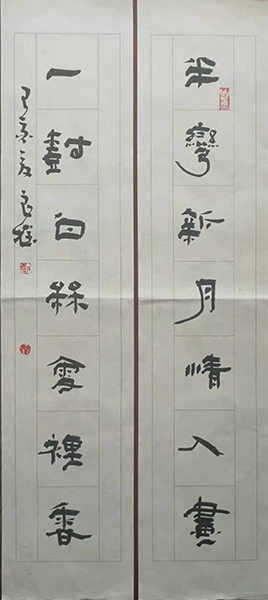 半彎新月情入畫
一尌白槑雪裡香